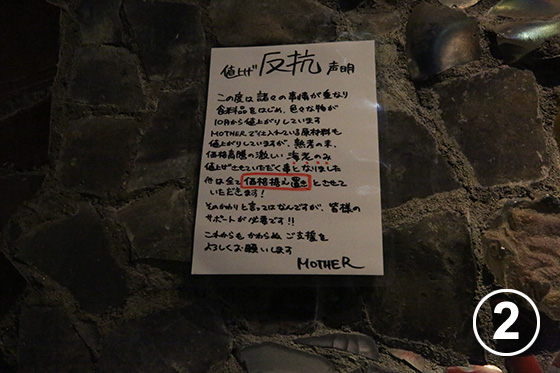 値上げ 反抗 声明
この度は諸々の事情が重なり
食料品をはじめ、色々な物が
10月から値上がりしています
MOTHERで仕入れている原材料も
値上がりしていますが、熟考の末、
価格高騰の激しい海老のみ
値上げさせていただく事となりました
他は全て価格据え置きとさせて
いただきます!
そのかわりと言ってはなんですが、皆様の
サポートが必要です!!
これからもかわらぬご支援を
よろしくお願いします
MOTHER
2